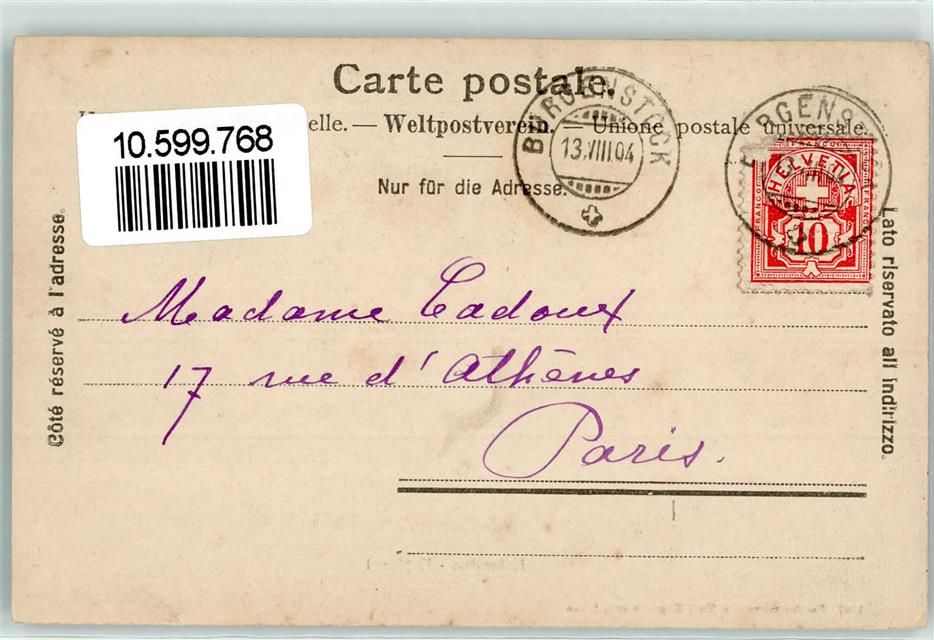 Carte postale.
10.599.768
elle. — Weltpostverein. — Unione postale universale.
Nur für die Adresse.
BÜRGENSTOCK
13.VIII.04
RGENST
HELVETIA
FRANCO
FRANCO
10
Côté réservé à l'adresse.
Lato riservato all' indirizzo.
Madame Cadoux
17 rue d'Athènes
Paris.